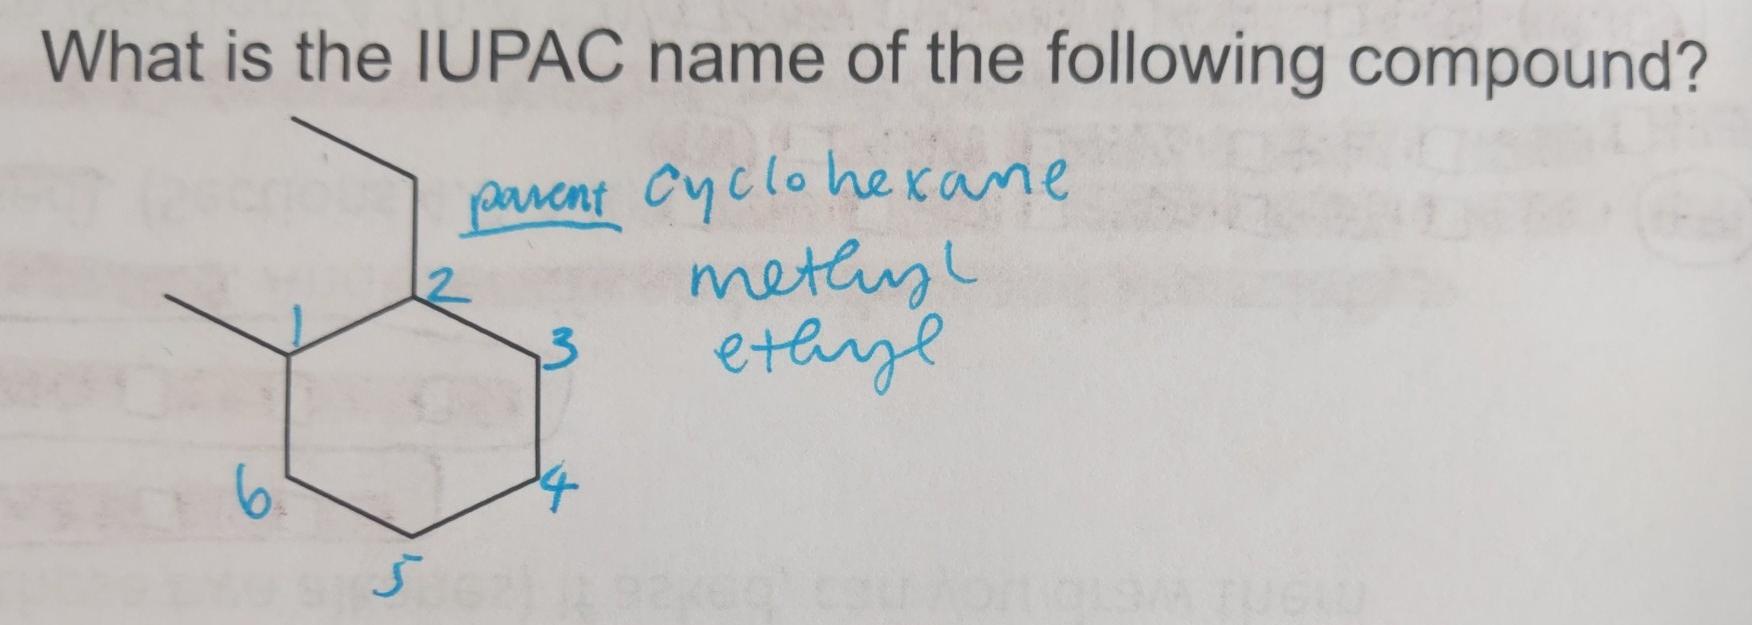 What is the IUPAC name of the following compound?
parent cyclohexane
methyl
ethyl
2
1
3
6
4
5